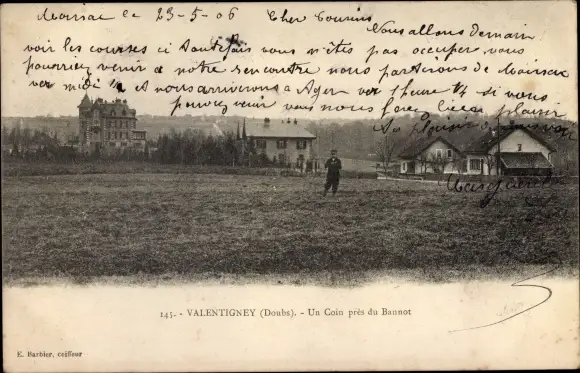 Moissac le 23-5-06 Cher Cousin
Nous allons Demain
voir les courses si Toutefois vous n'êtes pas occuper vous
pourriez venir a notre rencontre nous partirons de Moissac
ver midi ½ et nous arriverons a Agen ver 1 heure ¼ si vous
pouvez venir vous nous ferez bien plaisir
145. - VALENTIGNEY (Doubs). - Un Coin près du Bannot
E. Barbier, coiffeur